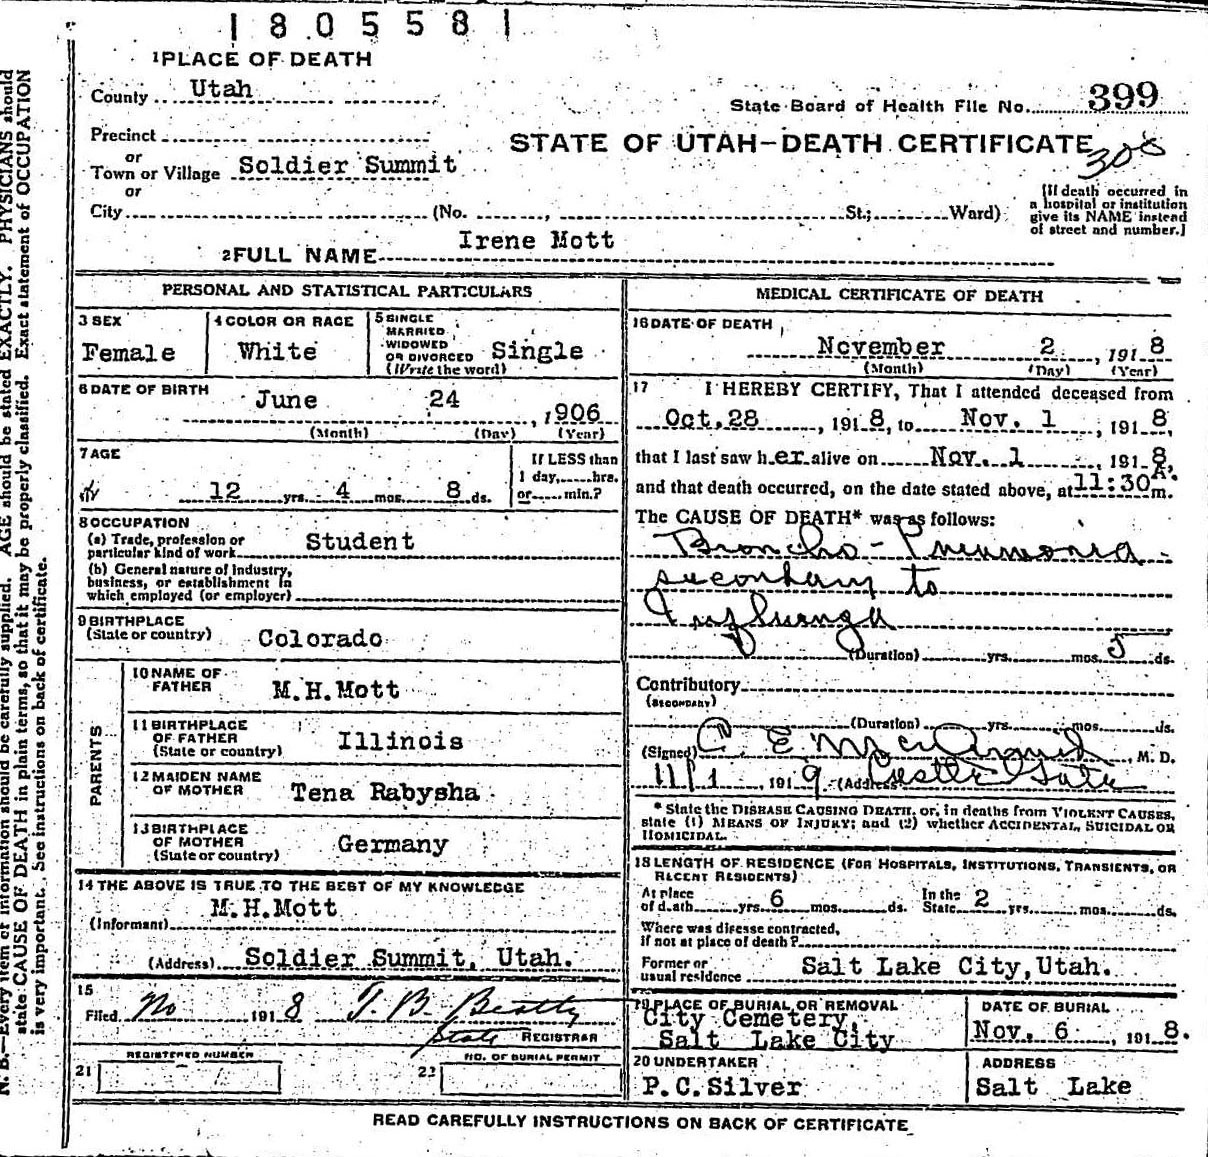 1805581
1 PLACE OF DEATH
County Utah
State Board of Health File No. 399
Precinct
STATE OF UTAH—DEATH CERTIFICATE
308
or
Town or Village Soldier Summit
or
City (No. , St.; Ward)
[If death occurred in
a hospital or institution
give its NAME instead
of street and number.]
2 FULL NAME Irene Mott
PERSONAL AND STATISTICAL PARTICULARS
3 SEX
Female
4 COLOR OR RACE
White
5 SINGLE
MARRIED
WIDOWED
OR DIVORCED
(Write the word)
Single
6 DATE OF BIRTH
June 24, 1906
(Month) (Day) (Year)
7 AGE
12 yrs. 4 mos. 8 ds.
If LESS than
1 day, hrs.
or min.?
8 OCCUPATION
(a) Trade, profession or
particular kind of work Student
(b) General nature of industry,
business, or establishment in
which employed (or employer)
9 BIRTHPLACE
(State or country) Colorado
PARENTS
10 NAME OF
FATHER M.H.Mott
11 BIRTHPLACE
OF FATHER
(State or country) Illinois
12 MAIDEN NAME
OF MOTHER Tena Rabysha
13 BIRTHPLACE
OF MOTHER
(State or country) Germany
14 THE ABOVE IS TRUE TO THE BEST OF MY KNOWLEDGE
(Informant) M.H.Mott
(Address) Soldier Summit, Utah.
15
Filed No , 1918 T. B. Beatty
State REGISTRAR
REGISTERED NUMBER
21
NO. OF BURIAL PERMIT
22
MEDICAL CERTIFICATE OF DEATH
16 DATE OF DEATH
November 2, 1918
(Month) (Day) (Year)
17 I HEREBY CERTIFY, That I attended deceased from
Oct.28, 1918, to Nov. 1, 1918,
that I last saw her alive on Nov. 1, 1918,
and that death occurred, on the date stated above, at 11:30 A. m.
The CAUSE OF DEATH* was as follows:
Broncho-Pneumonia
secondary to
Influenza
(Duration) yrs. mos. 5 ds.
Contributory
(SECONDARY)
(Duration) yrs. mos. ds.
(Signed) C. E. , M. D.
11/1, 1919 (Address) Castle Gate
* State the DISEASE CAUSING DEATH, or, in deaths from VIOLENT CAUSES,
state (1) MEANS OF INJURY; and (2) whether ACCIDENTAL, SUICIDAL OR
HOMICIDAL.
18 LENGTH OF RESIDENCE (FOR HOSPITALS, INSTITUTIONS, TRANSIENTS, OR
RECENT RESIDENTS)
At place
of death yrs. 6 mos. ds.
In the
State 2 yrs. mos. ds.
Where was disease contracted,
if not at place of death?
Former or
usual residence Salt Lake City,Utah.
19 PLACE OF BURIAL OR REMOVAL
City Cemetery,
Salt Lake City
DATE OF BURIAL
Nov. 6, 1918.
20 UNDERTAKER
P.C.Silver
ADDRESS
Salt Lake
READ CAREFULLY INSTRUCTIONS ON BACK OF CERTIFICATE
N. B.—Every item of information should be carefully supplied. AGE should be stated EXACTLY. PHYSICIANS should
state CAUSE OF DEATH in plain terms, so that it may be properly classified. Exact statement of OCCUPATION
is very important. See instructions on back of certificate.